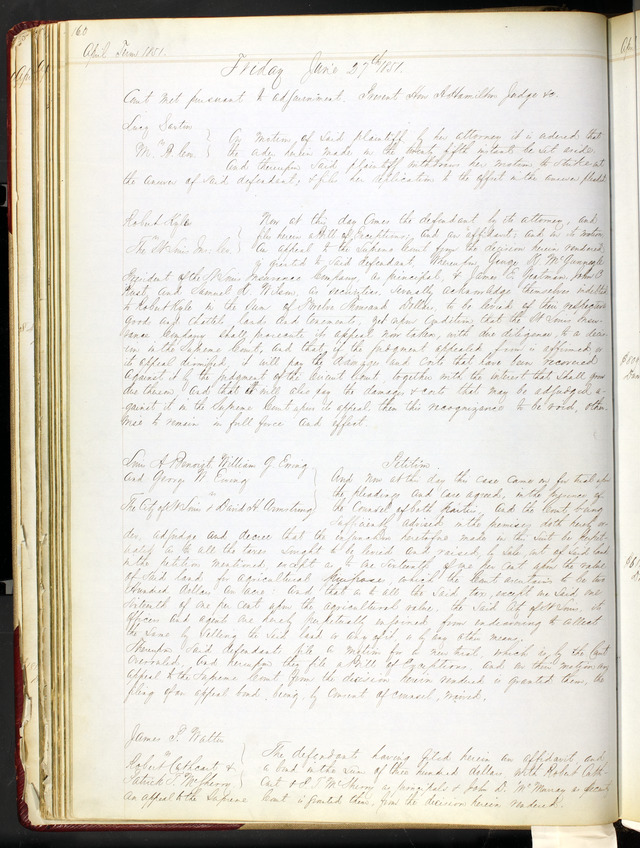 160
April Term 1851.
Friday June 27th 1851.
Court met pursuant to adjournment. Present Hon A Hamilton Judge &c.
Lucy
vs
On motion of said plaintiff by her attorney it is ordered that
the order herein made on the twenty fifth instant be set aside.
And thereupon said plaintiff withdraws her motion to strike out
the answer of said defendant, & files her replication to the offset in the answer pleaded
Robert Kyle
vs
The St Louis Ins. Co.
Now at this day comes the defendant by its attorney, and
files herein a Bill of Exceptions, and an affidavit; and on its motion
An appeal to the Supreme Court from the decision herein rendered,
is granted to said defendant. Whereupon, George K. McGunnegle
President of the St Louis Insurance Company, as principal, & James E. Yeatman, John
and Samuel as securities, severally acknowledge themselves indebted
to Robert Kyle in the sum of Twelve thousand Dollars, to be levied of their respective
good and chattels land and tenements; yet upon condition that the St Louis Insu-
rance Company shall prosecute its appeal now taken with due diligence to a deci-
sion in the Supreme Court, and that if the judgment appealed from is affirmed or
its appeal dismissed, it will pay the damages and costs that have been recovered
against it by the judgment of the Circuit Court together with the interest that shall grow
due thereon, and that it will also pay the damages & costs that may be adjudged a-
gainst it in the Supreme Court upon its appeal; then this recognizance to be void, other-
wise to remain in full force and effect.
Louis A Benoist, William G. Ewing
and George W Ewing
vs
The City of St Louis & David H. Armstrong
Petition.
And now at this day this case came on for trial upon
the pleadings and case agreed, in the presence of
the Counsel of both parties. And the Court, being
sufficiently advised in the premises, doth hereby or-
der, adjudge and decree that the injunction heretofore made in this suit be perpet-
ual as to all the taxes sought to be levied and raised, by sale, out of said land
in the petition mentioned, except as to one sixteenth of one per cent upon the value
of said land for agricultural purposes, which the Court ascertains to be two
hundred dollars an acre: And that as to all the said tax, except one said one
sixteenth of one per cent upon the agricultural value, the said City of St Louis, its
officers and agents are hereby perpetually enjoined from endeavoring to collect
the same by selling the said land or any of it, or by any other means.
Whereupon said defendants file a motion for a new trial, which is, by the Court
overruled, and thereupon they file a Bill of Exceptions. And on their motion, an
appeal to the Supreme Court from the decision herein rendered is granted them, the
filing of an appeal bond, being, by consent of Counsel, waived.
James
vs
Robert Cathcart &
Patrick T. McSherry
The defendants having filed herein an affidavit and
a bond in the sum of three hundred dollars with Robert Cath-
cart & P. T McSherry as principals & John D. as security
An appeal to the Supreme Court is granted them, from the decision herein rendered.